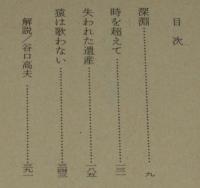 目次
深淵……………………九
時を超えて……………………一三一
失われた遺産……………………一八五
猿は歌わない……………………
解説／谷口高夫……………………